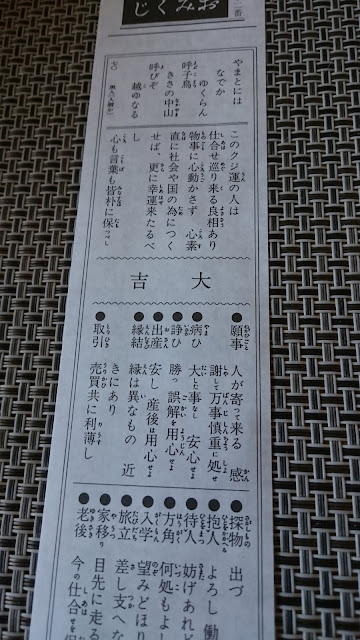 二番
おみくじ
やまとには
なでか
ゆくらん
呼子鳥
きさの中山
呼びぞ
越ゆなる
このクジ運の人は
仕合せ巡り来る良相あり
物事に心動かさず 心素
直に社会や国の為につく
せば、更に幸運来たるべ
し
心も言葉も皆朴に保つべし
大吉
●願事 人が寄って来る 感
謝して万事慎重に処せ
●病ひ 大した事なし 安心せよ
●諍ひ 勝つ 誤解を用心せよ
●出産 安し 産後は用心せよ
●縁結 縁は異なもの 近
きにあり
●取引 売買共に利薄し
●探物 出づ
●抱人 よろし 働
●待人 妨げあれど
●方角 何処もよ
●入学 望みどほり
●旅立 差し支へな
●家移り 目先に走る
●老後 今の仕合せを